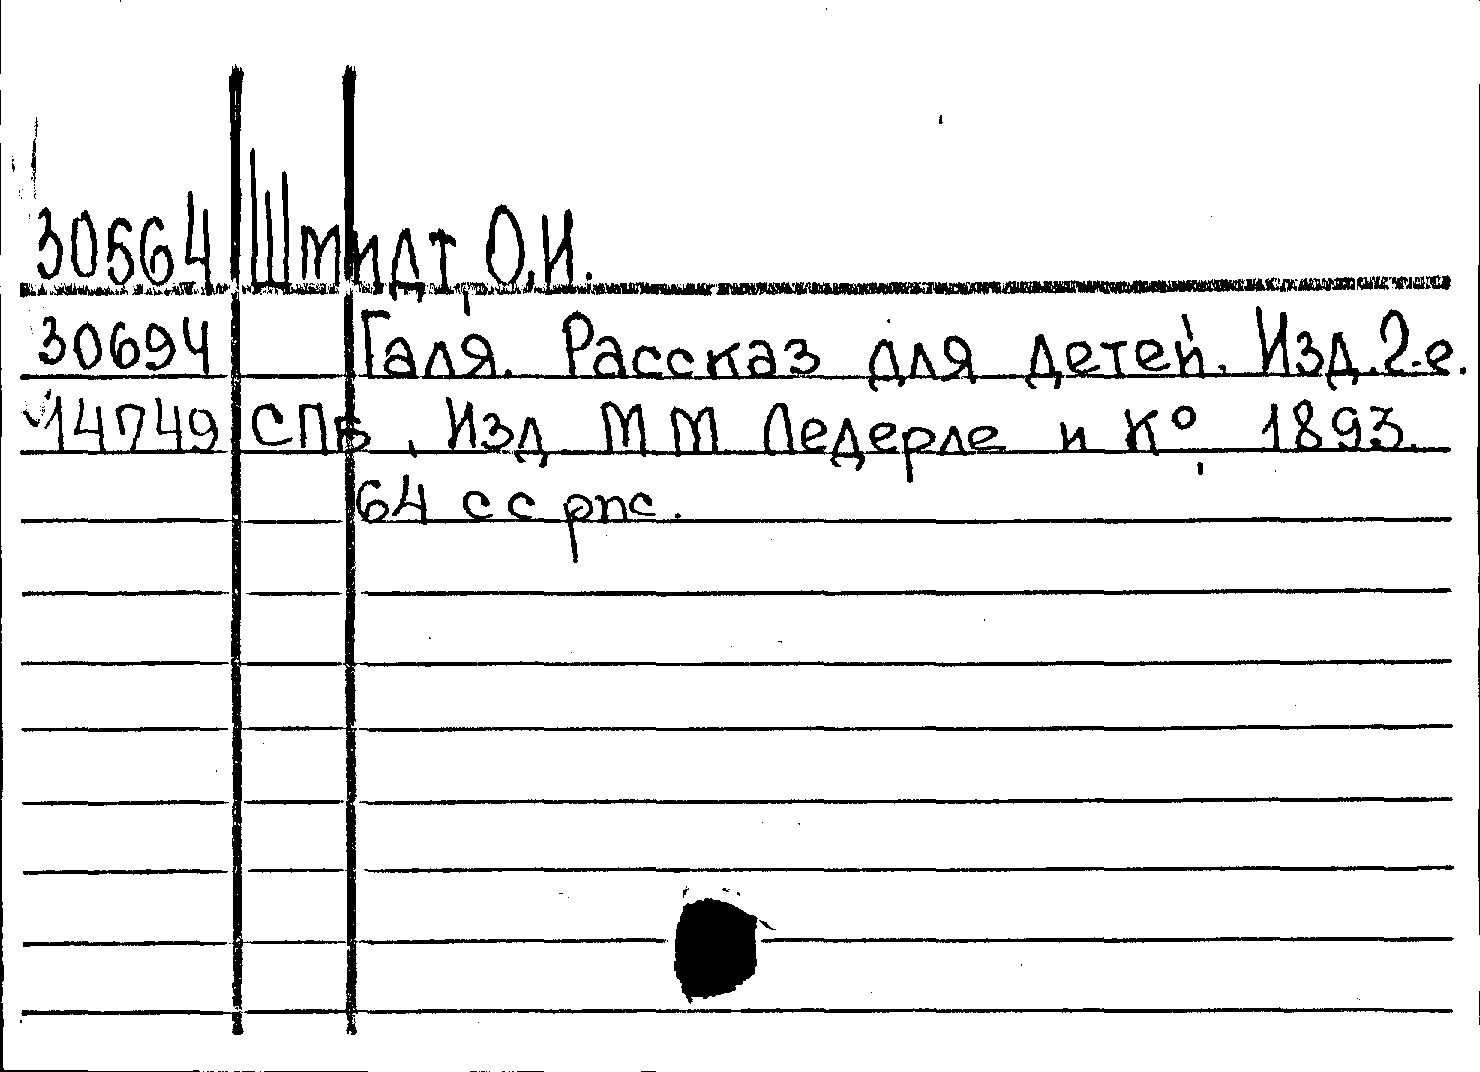 30564 Шмидт, О.И.
30694 Галя. Рассказ для детей. Изд. 2-е.
14749 СПб, Изд ММ Ледерле и Кº, 1893.
64 с с рис.